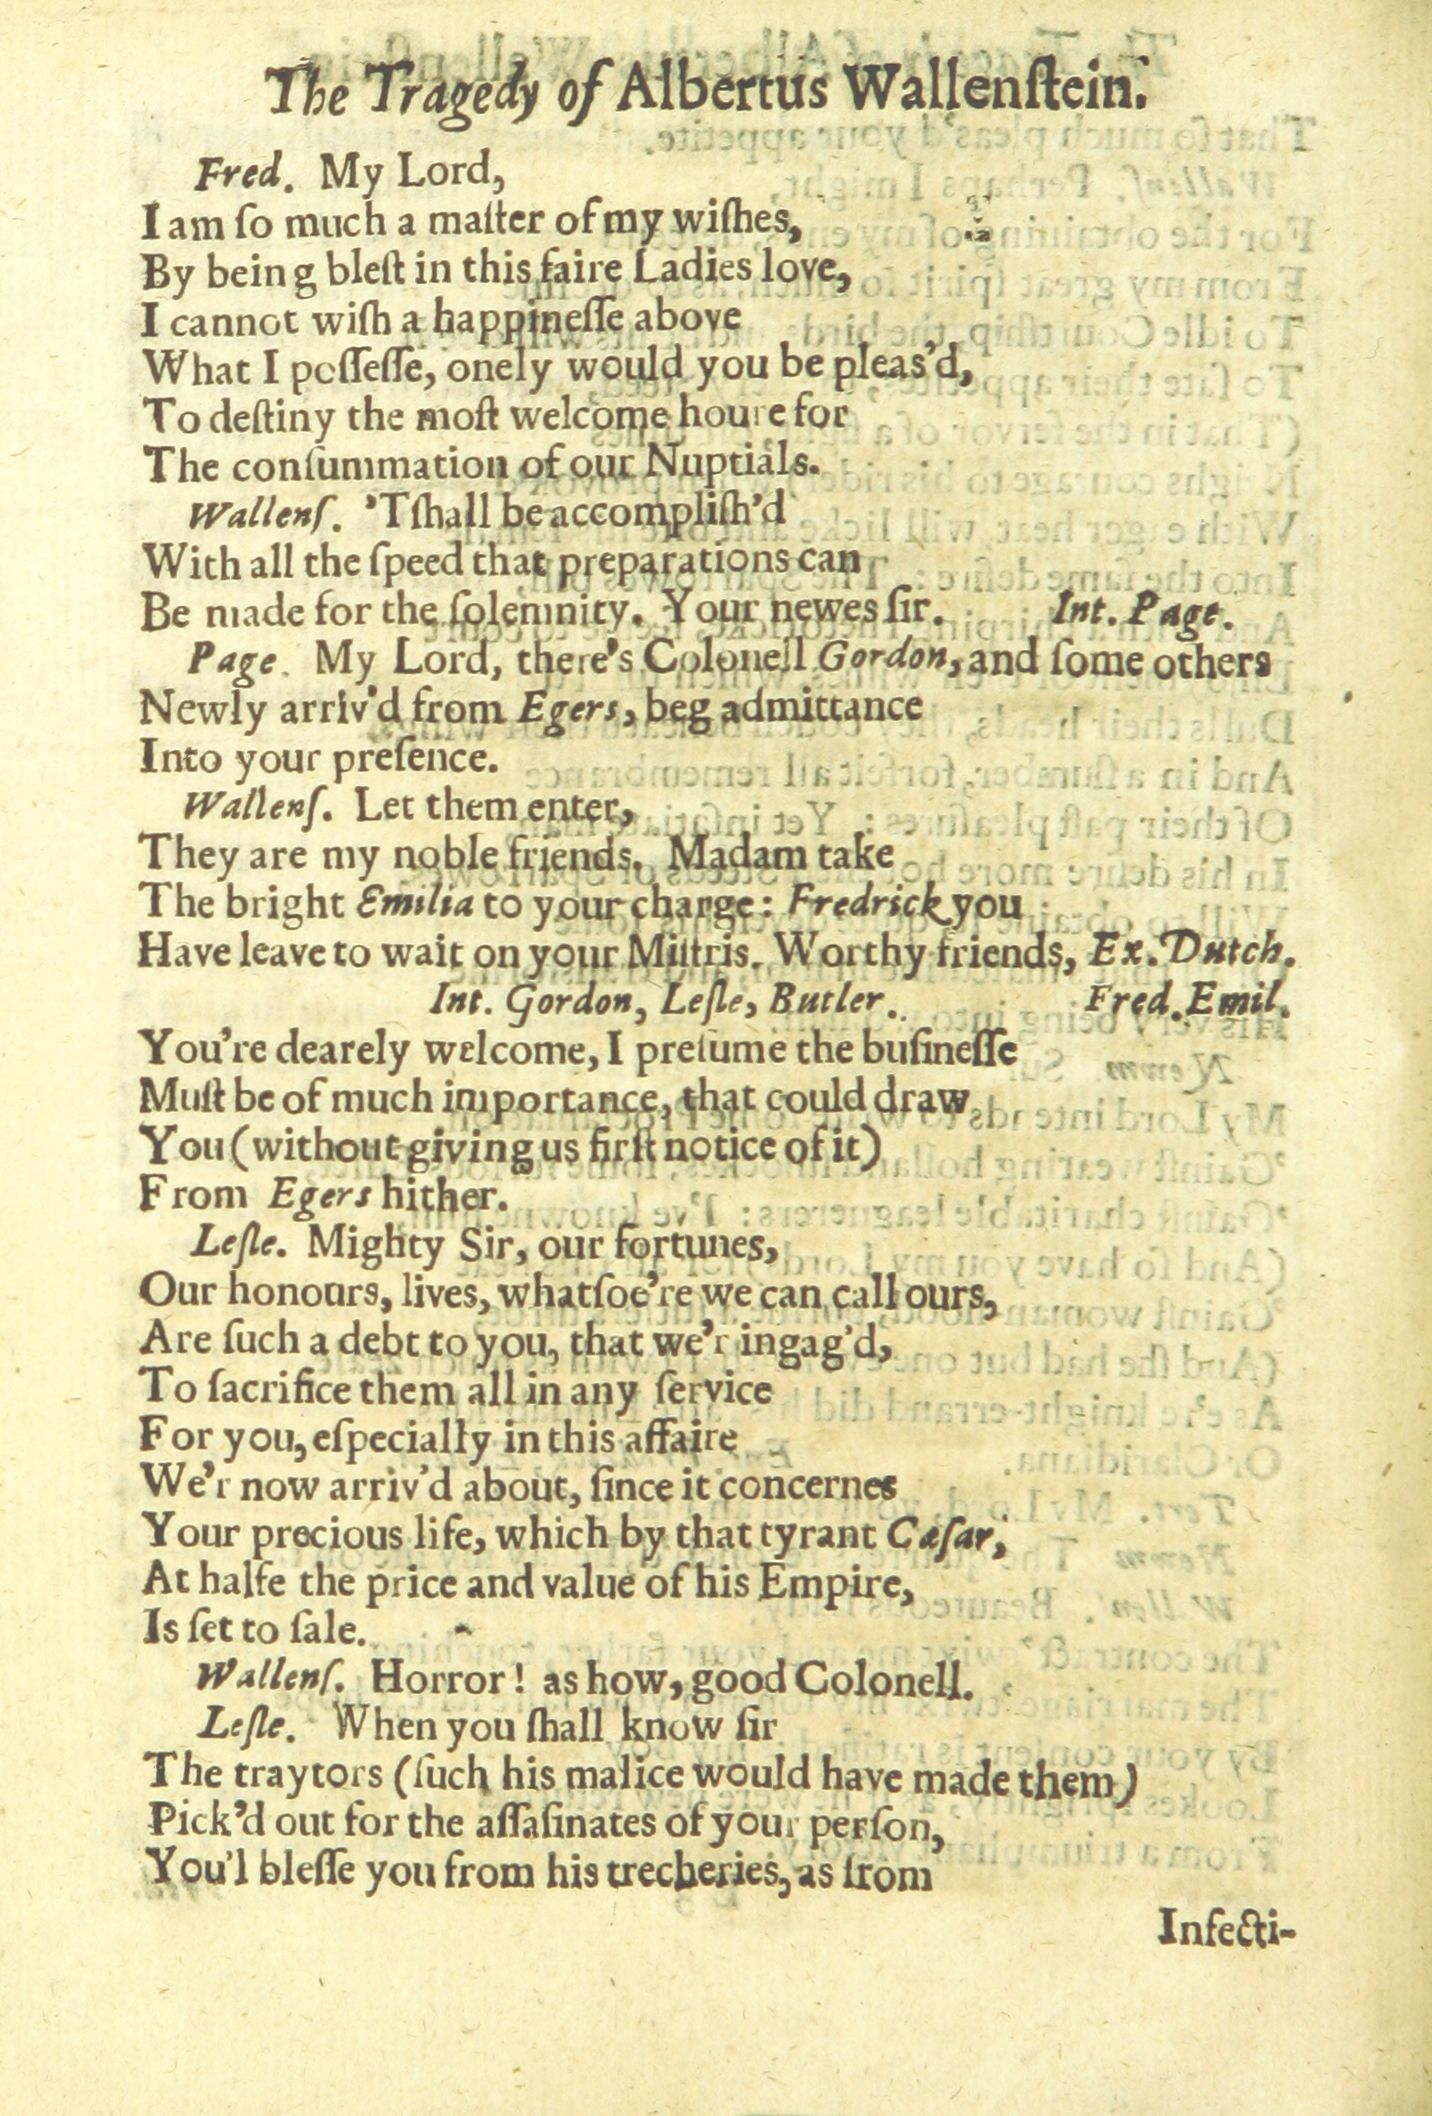 The Tragedy of Albertus Wallenſtein.
Fred. My Lord,
I am ſo much a maſter of my wiſhes,
By being bleſt in this faire Ladies love,
I cannot wiſh a happineſſe above
What I poſſeſſe, onely would you be pleas'd,
To deſtiny the moſt welcome houre for
The conſummation of our Nuptials.
Wallenſ. 'Tſhall be accompliſh'd
With all the ſpeed that preparations can
Be made for the ſolemnity. Your newes ſir. Int. Page.
Page. My Lord, there's Colonell Gordon, and ſome others
Newly arriv'd from Egers, beg admittance
Into your preſence.
Wallenſ. Let them enter,
They are my noble friends. Madam take
The bright Emilia to your charge: Fredrick you
Have leave to wait on your Miſtris. Worthy friends, Ex. Dutch.
Int. Gordon, Leſle, Butler. Fred. Emil.
You're dearely welcome, I preſume the buſineſſe
Muſt be of much importance, that could draw
You (without giving us firſt notice of it)
From Egers hither.
Leſle. Mighty Sir, our fortunes,
Our honours, lives, whatſoe're we can call ours,
Are ſuch a debt to you, that we'r ingag'd,
To ſacrifice them all in any ſervice
For you, eſpecially in this affaire
We'r now arriv'd about, ſince it concernes
Your precious life, which by that tyrant Cæſar,
At halfe the price and value of his Empire,
Is ſet to ſale.
Wallenſ. Horror! as how, good Colonell.
Leſle. When you ſhall know ſir
The traytors (ſuch his malice would have made them)
Pick'd out for the aſſaſinates of your perſon,
You'l bleſſe you from his trecheries, as from
Infecti-